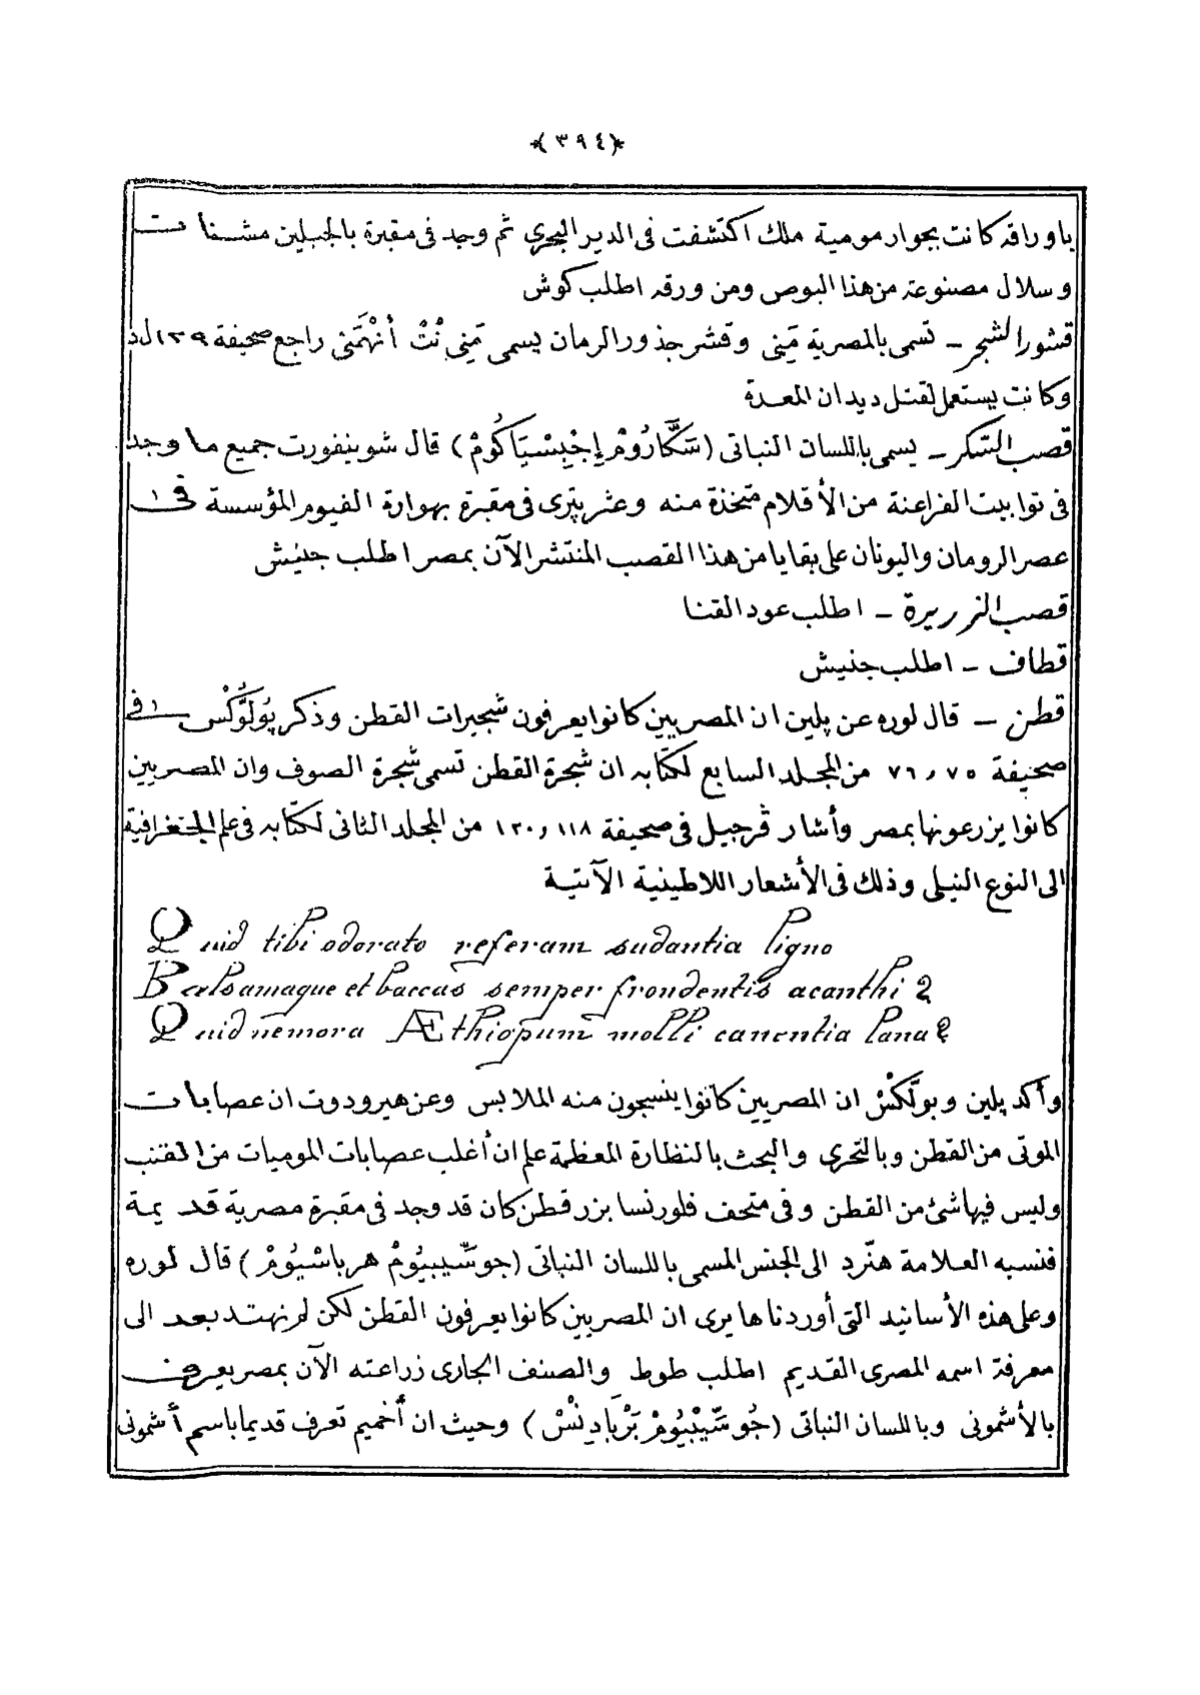 ﴿٣٩٤﴾
باوراقه كانت بجوار مومية ملك اكتشفت فى الدير البحرى ثم وجد فى مقبرة بالجبلين مشنات
وسلال مصنوعة من هذا البوص ومن ورقه اطلب كوش
قشور الشجر ـ تسمى بالمصرية مَنِى وقشر جذور الرمان يسمى مَنِى نْتْ أَنْهَمَنِى راجع صحيفة ١٣٩
وكانت يستعمل لقتل ديدان المعدة
قصب السّكر ـ يسمى باللسان النباتى (سَكَّارُومْ إِجْبِسْيَاكُومْ) قال شوينفورت جميع ما وجد
فى توابيت الفراعنة من الأقلام متخذة منه وعثر پترى فى مقبرة بهوارة الفيوم المؤسسة فى
عصر الرومان واليونان على بقايا من هذا القصب المنتشر الآن بمصر اطلب جنيش
قصب الذريرة ـ اطلب عود القنا
قطاف ـ اطلب جنيش
قطن ـ قال لوره عن پلين ان المصريين كانوا يعرفون شجيرات القطن وذكر پُولُّوكْس فى
صحيفة ٧٥, ٧٦ من المجلد السابع لكتابه ان شجرة القطن تسمى شجرة الصوف وان المصريين
كانوا يزرعونها بمصر وأشار ڤرجيل فى صحيفة ١١٨, ١٢٠ من المجلد الثانى لكتابه فى علم الجغرافية
الى النوع النيلى وذلك فى الأشعار اللاطينية الآتية
Quid tibi odorato referam sudantia ligno
Balsamaque et baccas semper frondentis acanthi?
Quid nemora Æthiopum molli canentia lana?
وأكد پلين وبولّكْسْ ان المصريين كانوا ينسجون منه الملابس وعن هيرودوت ان عصابات
الموتى من القطن وبالتحرى والبحث بالنظارة المعظمة علم ان أغلب عصابات الموميات من القنب
وليس فيها شئ من القطن وفى متحف فلورنسا بزر قطن كان قد وجد فى مقبرة مصرية قديمة
فنسبه العلامة هنّرد الى الجنس المسمى باللسان النباتى (جوسِّيبيُومْ هرباسْيُومْ) قال لوره
وعلى هذه الأسانيد التى أوردناها يرى ان المصريين كانوا يعرفون القطن لكن لم نهتد بعد الى
معرفة اسمه المصرى القديم اطلب طوط والصنف الجارى زراعته الآن بمصر يعرف
بالأشمونى وباللسان النباتى (جُوسِّيْبْيُومْ بَرْبَادِنْسْ) وحيث ان أخميم تعرف قديما باسم أشمونى